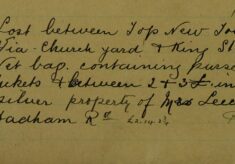 Lost between Top New To
Via Church yard & King St
Net bag. containing purse
ckets & between 2 & 3£. in
silver property of Mrs Lee
Hadham Rd £2.14.2½